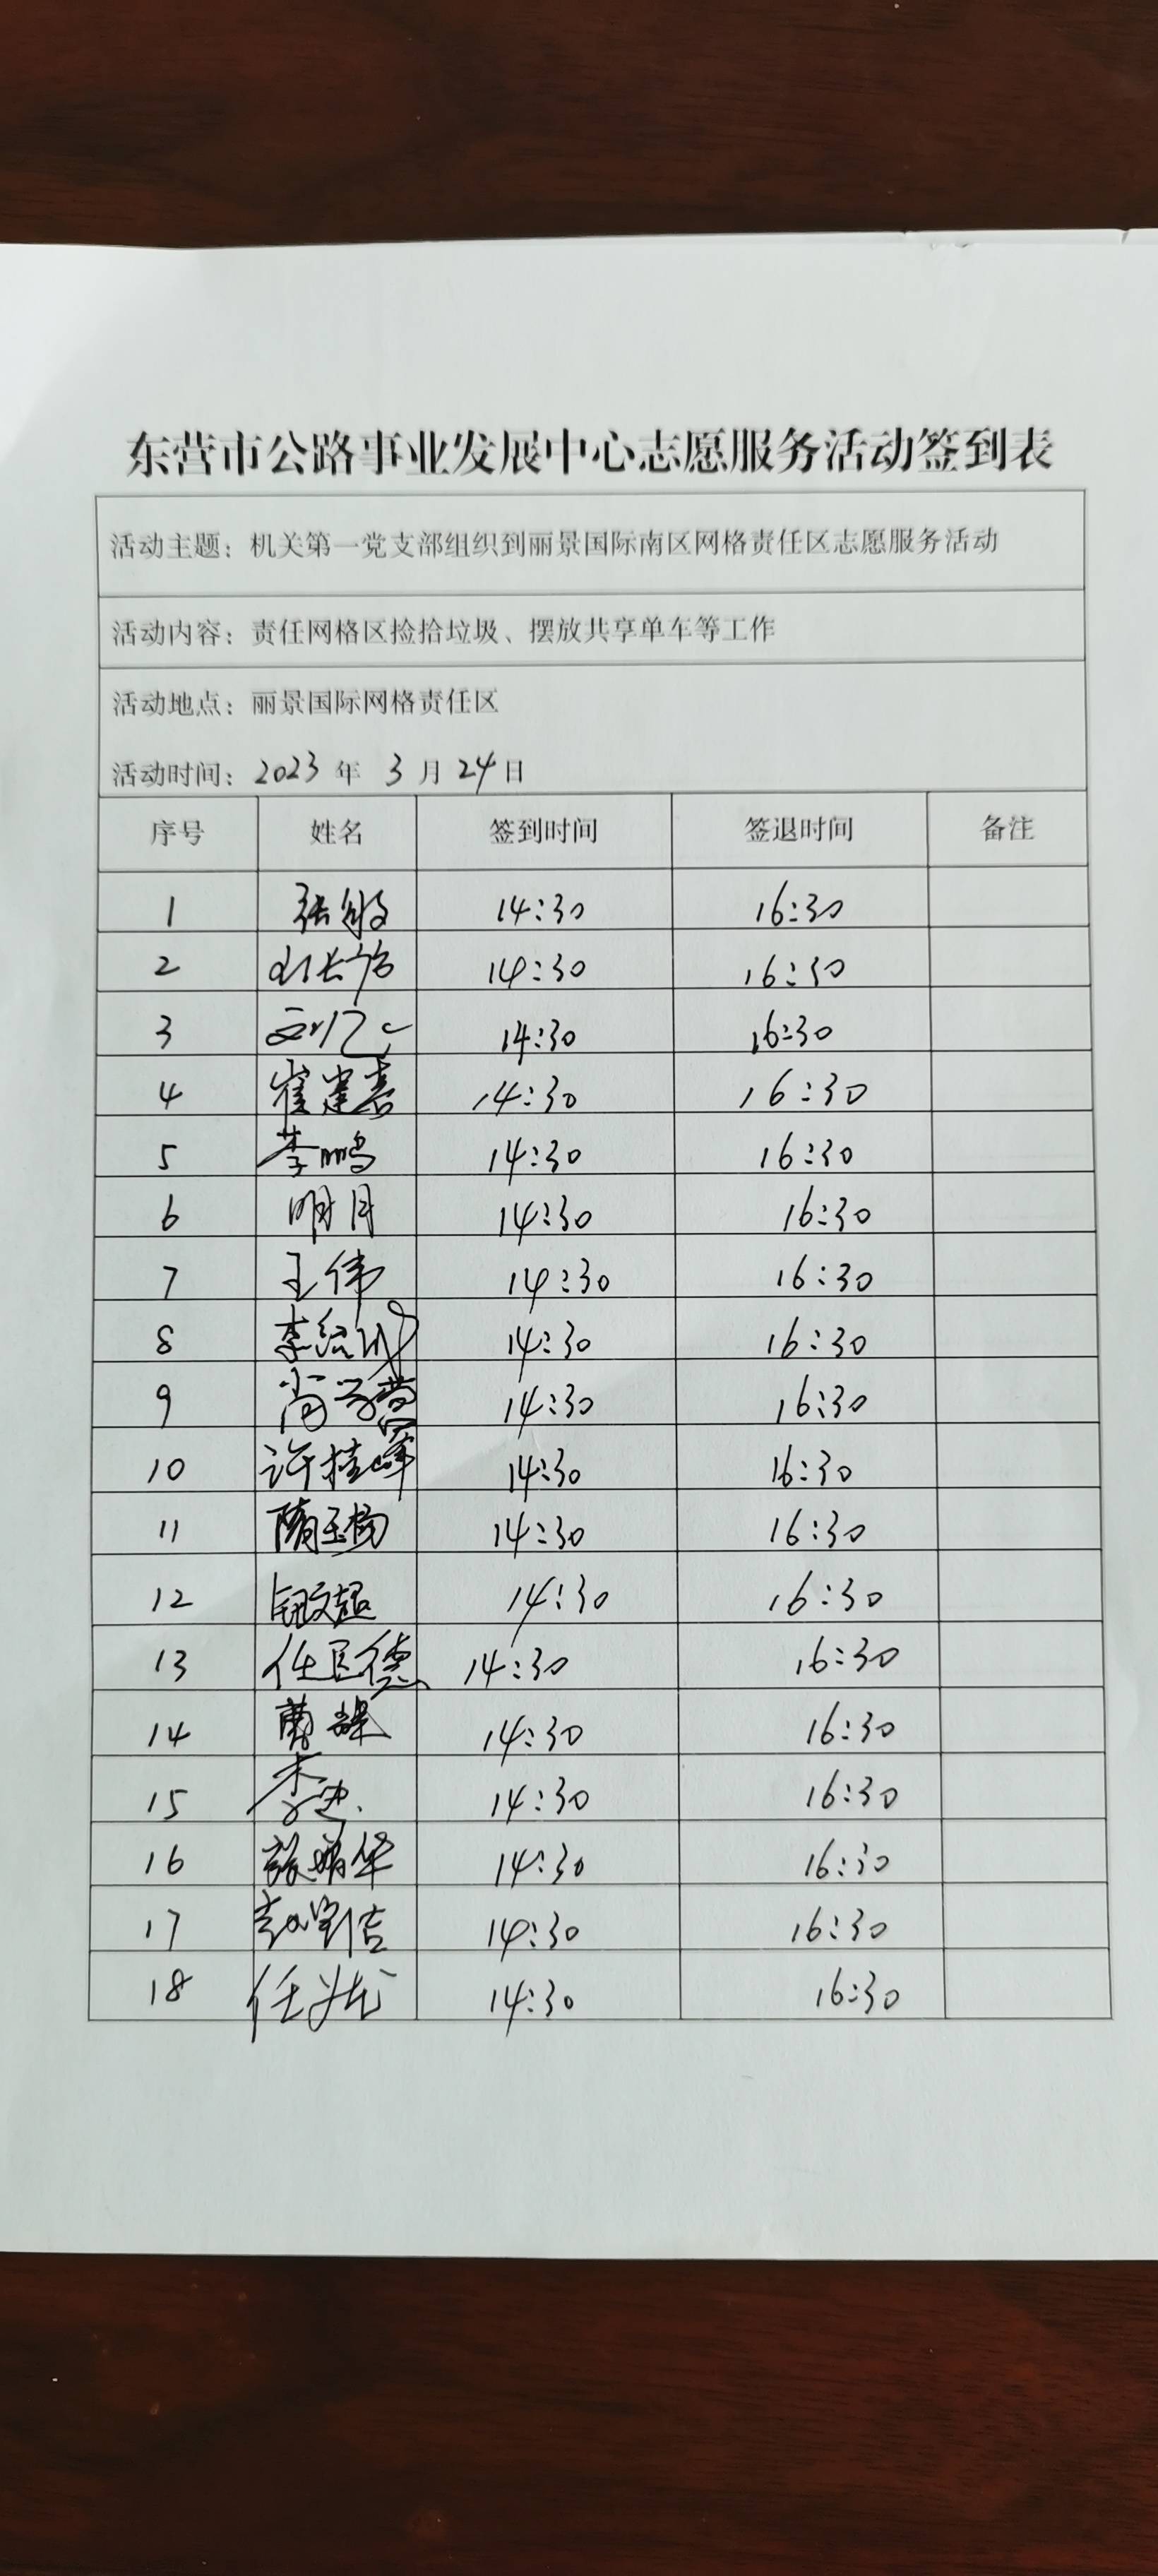 东营市公路事业发展中心志愿服务活动签到表
活动主题：机关第一党支部组织到丽景国际南区网格责任区志愿服务活动
活动内容：责任网格区捡拾垃圾、摆放共享单车等工作
活动地点：丽景国际网格责任区
活动时间：2023年 3月24日
序号 姓名 签到时间 签退时间 备注
1 张敏 14:30 16:30
2 14:30 16:30
3 14:30 16:30
4 崔建喜 14:30 16:30
5 李鹏 14:30 16:30
6 明月 14:30 16:30
7 王伟 14:30 16:30
8 李绍 14:30 16:30
9 尚 14:30 16:30
10 许桂峰 14:30 16:30
11 隋玉杨 14:30 16:30
12 14:30 16:30
13 任臣德 14:30 16:30
14 曹 14:30 16:30
15 李 14:30 16:30
16 华 14:30 16:30
17 赵 14:30 16:30
18 任 14:30 16:30